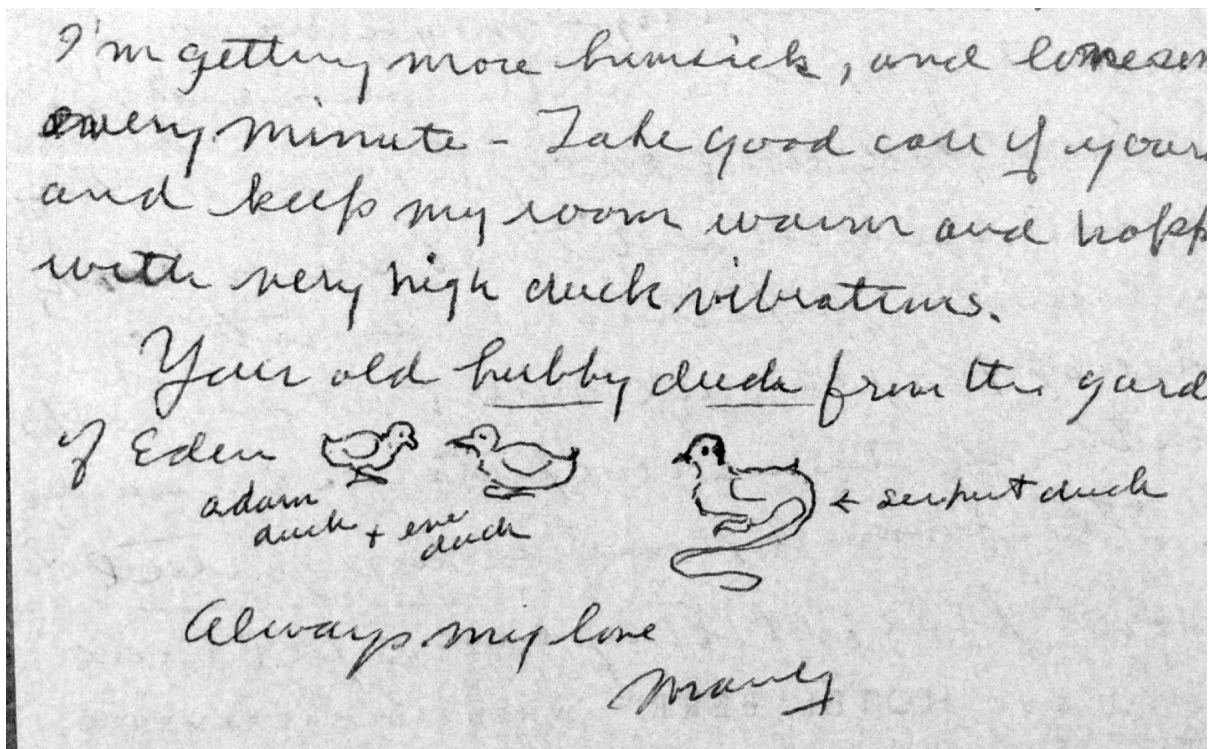 I'm getting more humsick, and lonesom
every minute - Take good care of yours
and keep my room warm and happ
with very high duck vibrations.
Your old hubby duck from the gard
of Eden
adam
duck + eve
duck
← serpent duck
Always my love
Manly